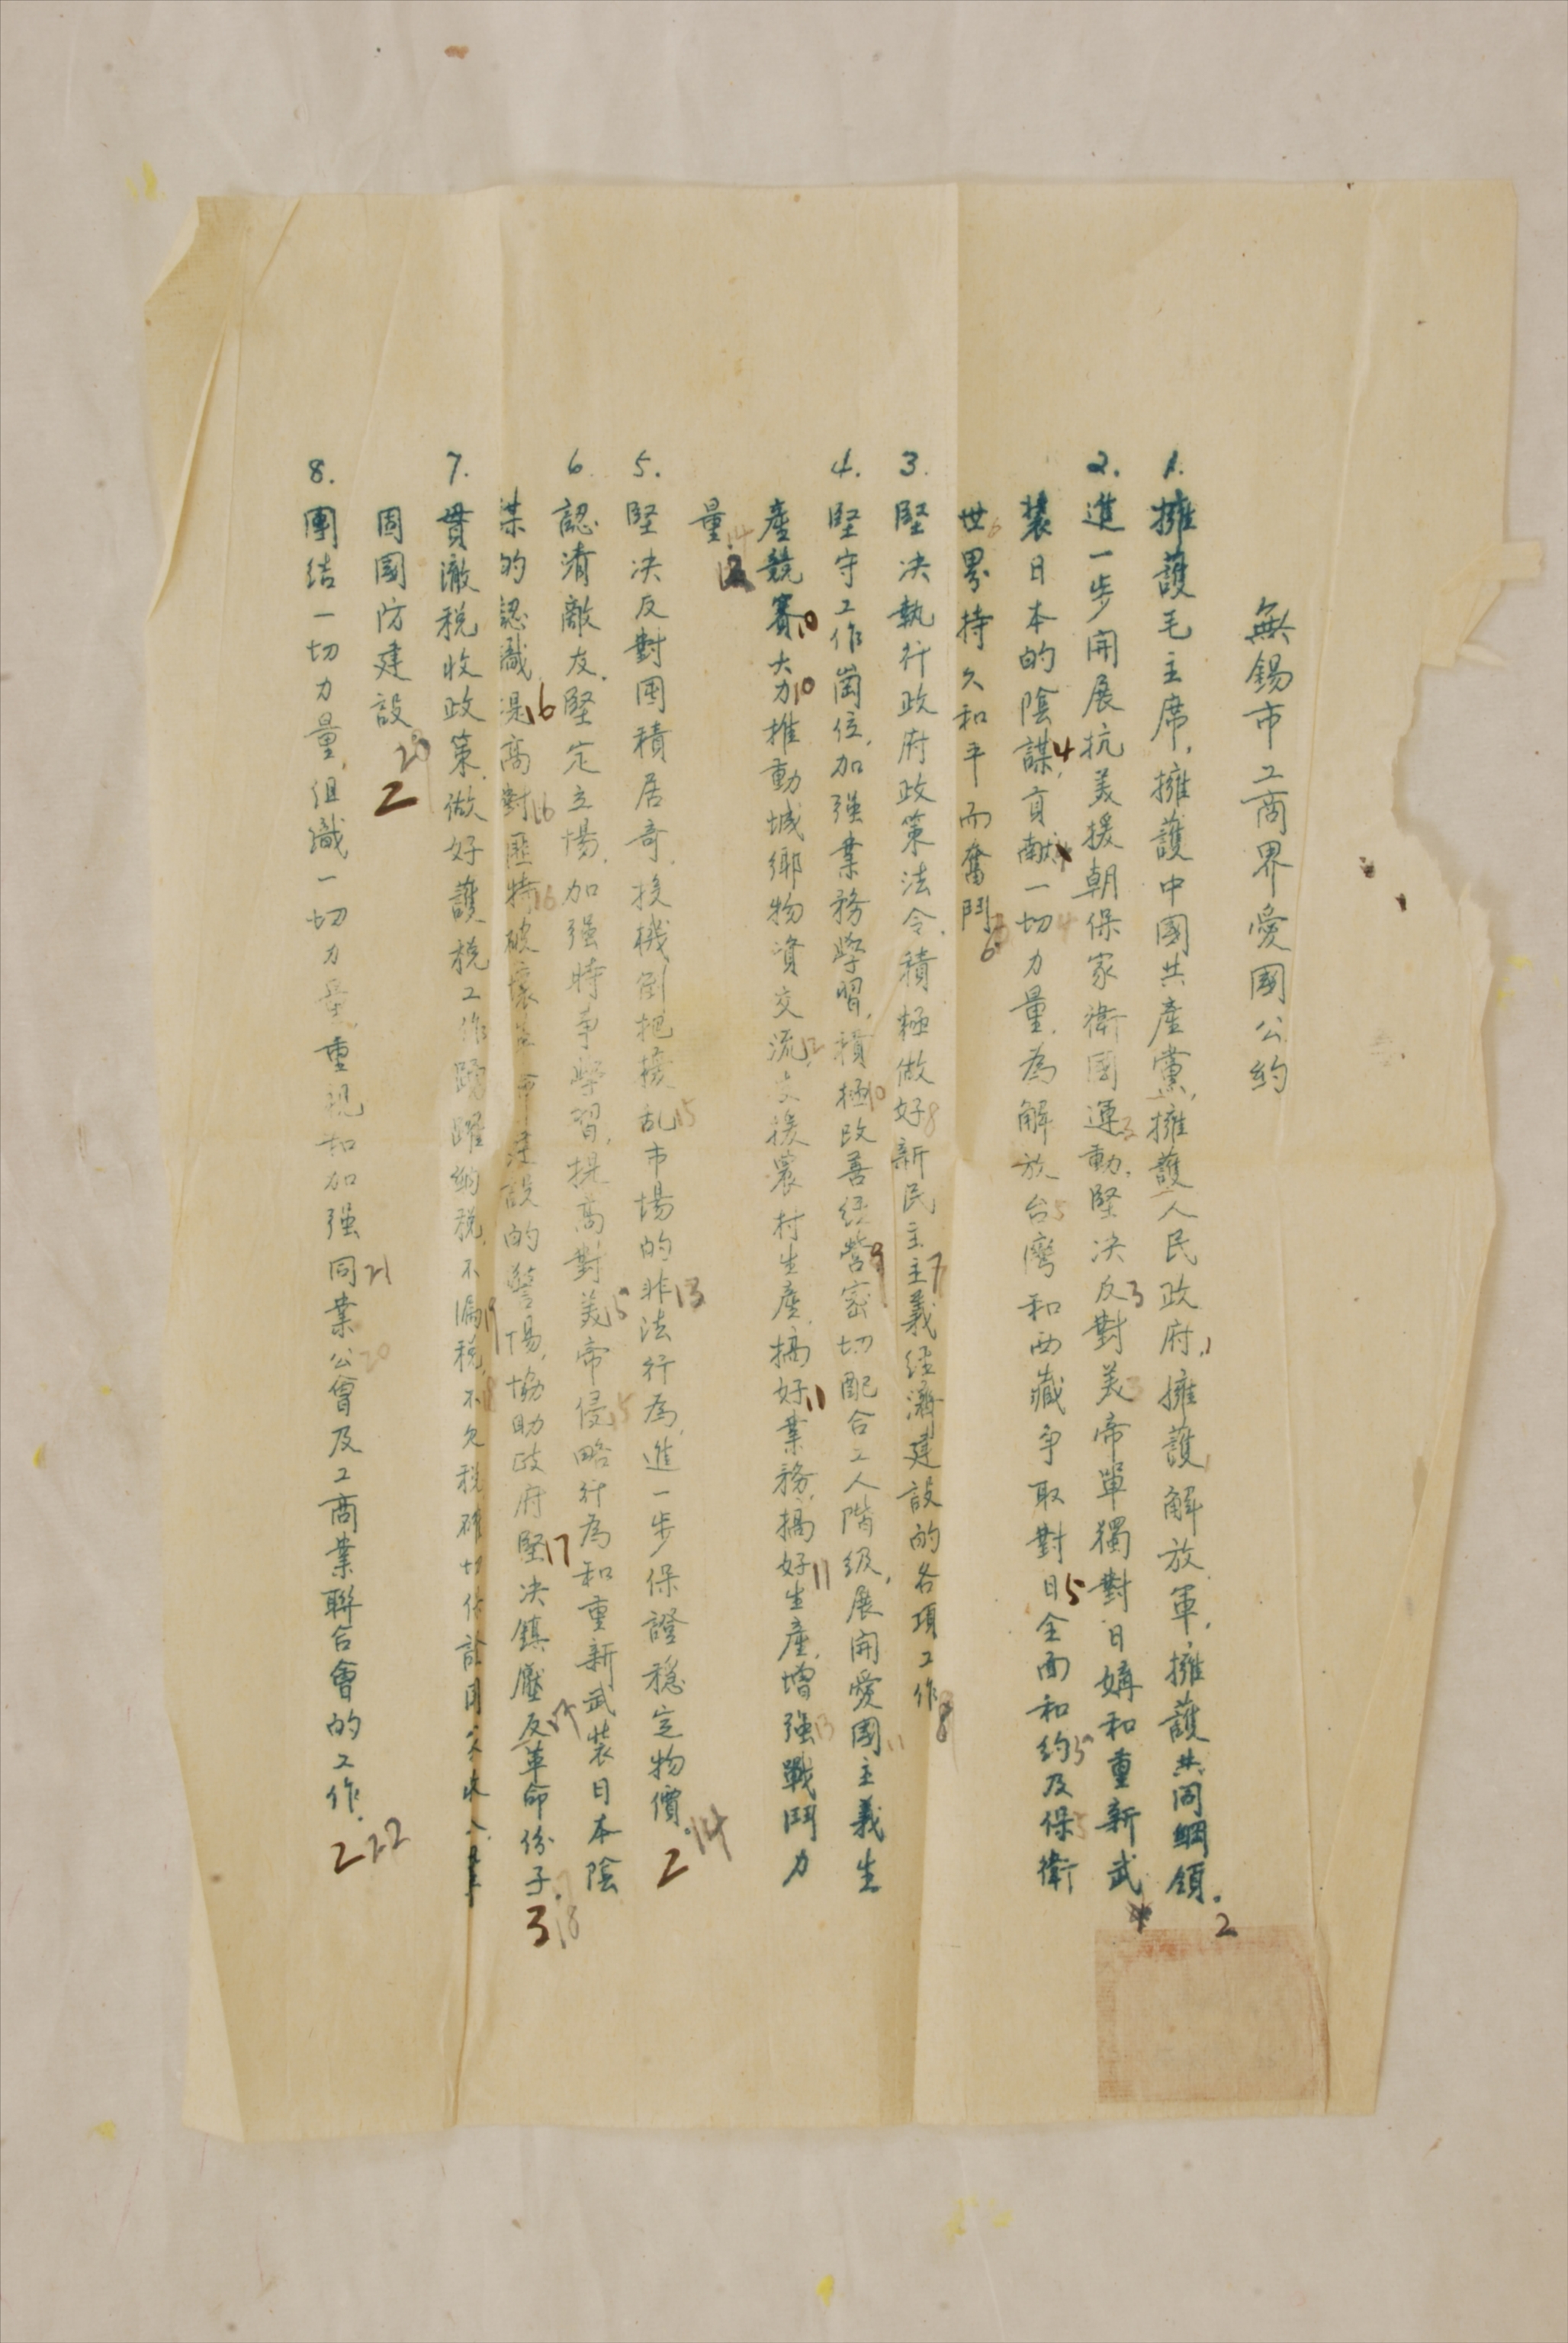 無錫市工商界愛國公約
1. 擁護毛主席,擁護中國共產黨,擁護人民政府,擁護解放軍,擁護共同綱領。
2. 進一步開展抗美援朝保家衛國運動,堅决反對美帝單獨對日媾和重新武
裝日本的陰謀,貢献一切力量,為解放台灣和西藏爭取對日全面和約及保衛
世界持久和平而奮鬥
3. 堅决執行政府政策法令,積極做好新民主主義経濟建設的各項工作
4. 堅守工作崗位,加强業務學習,積極改善経營密切配合工人階級,展開愛國主義生
產競賽大力推動城鄉物資交流,支援農村生產,搞好業務,搞好生產,增强戰鬥力
量
5. 堅决反對囤積居奇,投機倒把擾乱市場的非法行為,進一步保證穩定物價。
6. 認清敵友,堅定立場,加强時事學習,提高對美帝侵略行為和重新武裝日本陰
謀的認識,提高對匪特破壞 建設的警惕,協助政府堅决鎮壓反革命份子。
7. 貫澈税收政策,做好護税工作踴躍納税,不漏税,不欠税確切估計國家收入,
固國防建設
8. 團结一切力量,组織一切力量,重視和加强同業公會及工商業聯合會的工作.